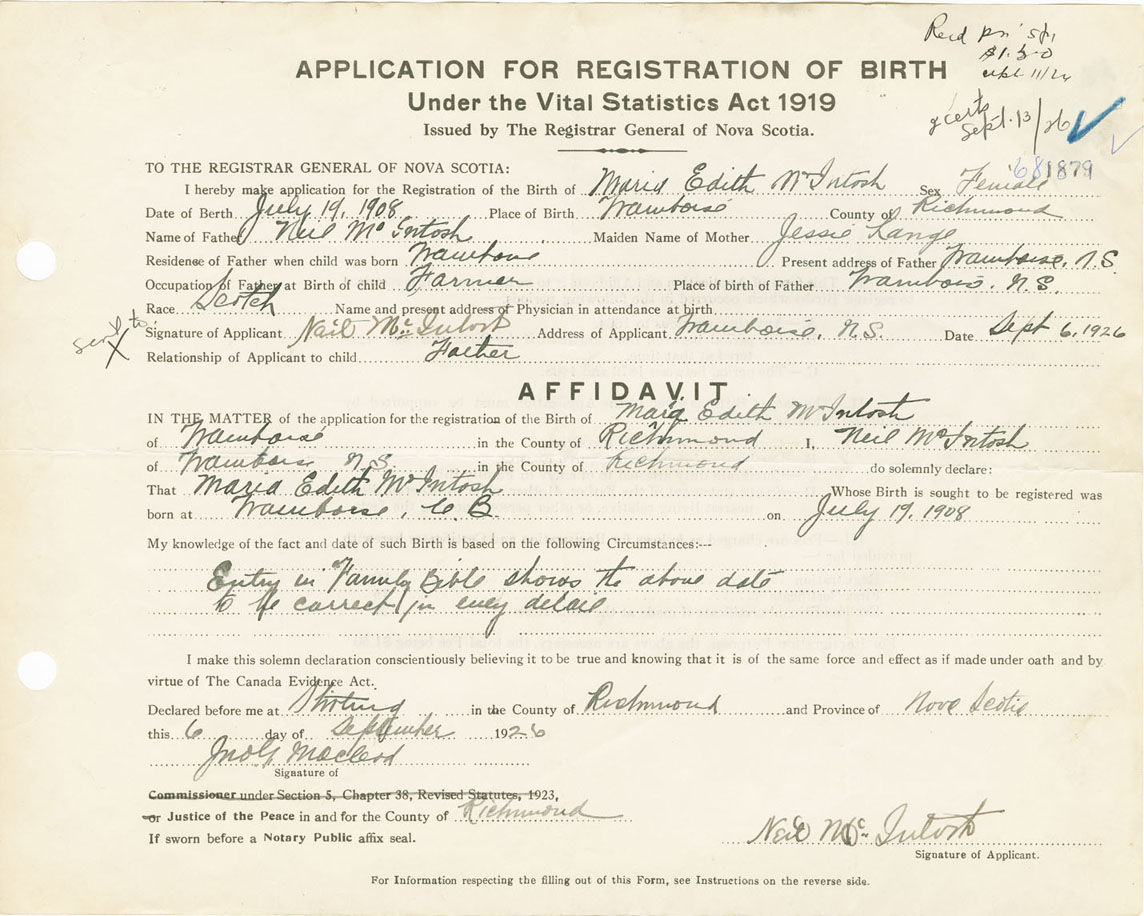 Recd
$1.50
Sept. 13/26
681879
APPLICATION FOR REGISTRATION OF BIRTH
Under the Vital Statistics Act 1919
Issued by The Registrar General of Nova Scotia.
TO THE REGISTRAR GENERAL OF NOVA SCOTIA:
I hereby make application for the Registration of the Birth of Maria Edith McIntosh Sex Female
Date of Berth July 19, 1908 Place of Birth Framboise County of Richmond
Name of Father Neil McIntosh Maiden Name of Mother Jessie Lange
Residence of Father when child was born Framboise Present address of Father Framboise, N.S.
Occupation of Father at Birth of child Farmer Place of birth of Father Frambois, N.S.
Race Scotch Name and present address of Physician in attendance at birth
Signature of Applicant Neil McIntosh Address of Applicant Framboise, N.S. Date Sept 6, 1926
Relationship of Applicant to child Father
AFFIDAVIT
IN THE MATTER of the application for the registration of the Birth of Maria Edith McIntosh
of Framboise in the County of Richmond I, Neil McIntosh
of Framboise N.S. in the County of Richmond do solemnly declare:
That Maria Edith McIntosh Whose Birth is sought to be registered was
born at Framboise, C.B. on July 19, 1908
My knowledge of the fact and date of such Birth is based on the following Circumstances:--
Entry in Family Bible shows the above date
to be correct in every detail
I make this solemn declaration conscientiously believing it to be true and knowing that it is of the same force and effect as if made under oath and by
virtue of The Canada Evidence Act.
Declared before me at in the County of Richmond and Province of Nova Scotia
this 6 day of September 1926
Macleod
Signature of
Commissioner under Section 5, Chapter 38, Revised Statutes, 1923,
or Justice of the Peace in and for the County of Richmond
If sworn before a Notary Public affix seal.
Neil McIntosh
Signature of Applicant.
For Information respecting the filling out of this Form, see Instructions on the reverse side.